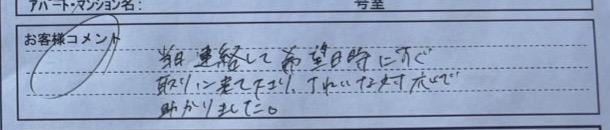 アパート・マンション名: 号室
お客様コメント
当日連絡して希望日時にすぐ
取りに来て下さり、きれいな対応で
助かりました。